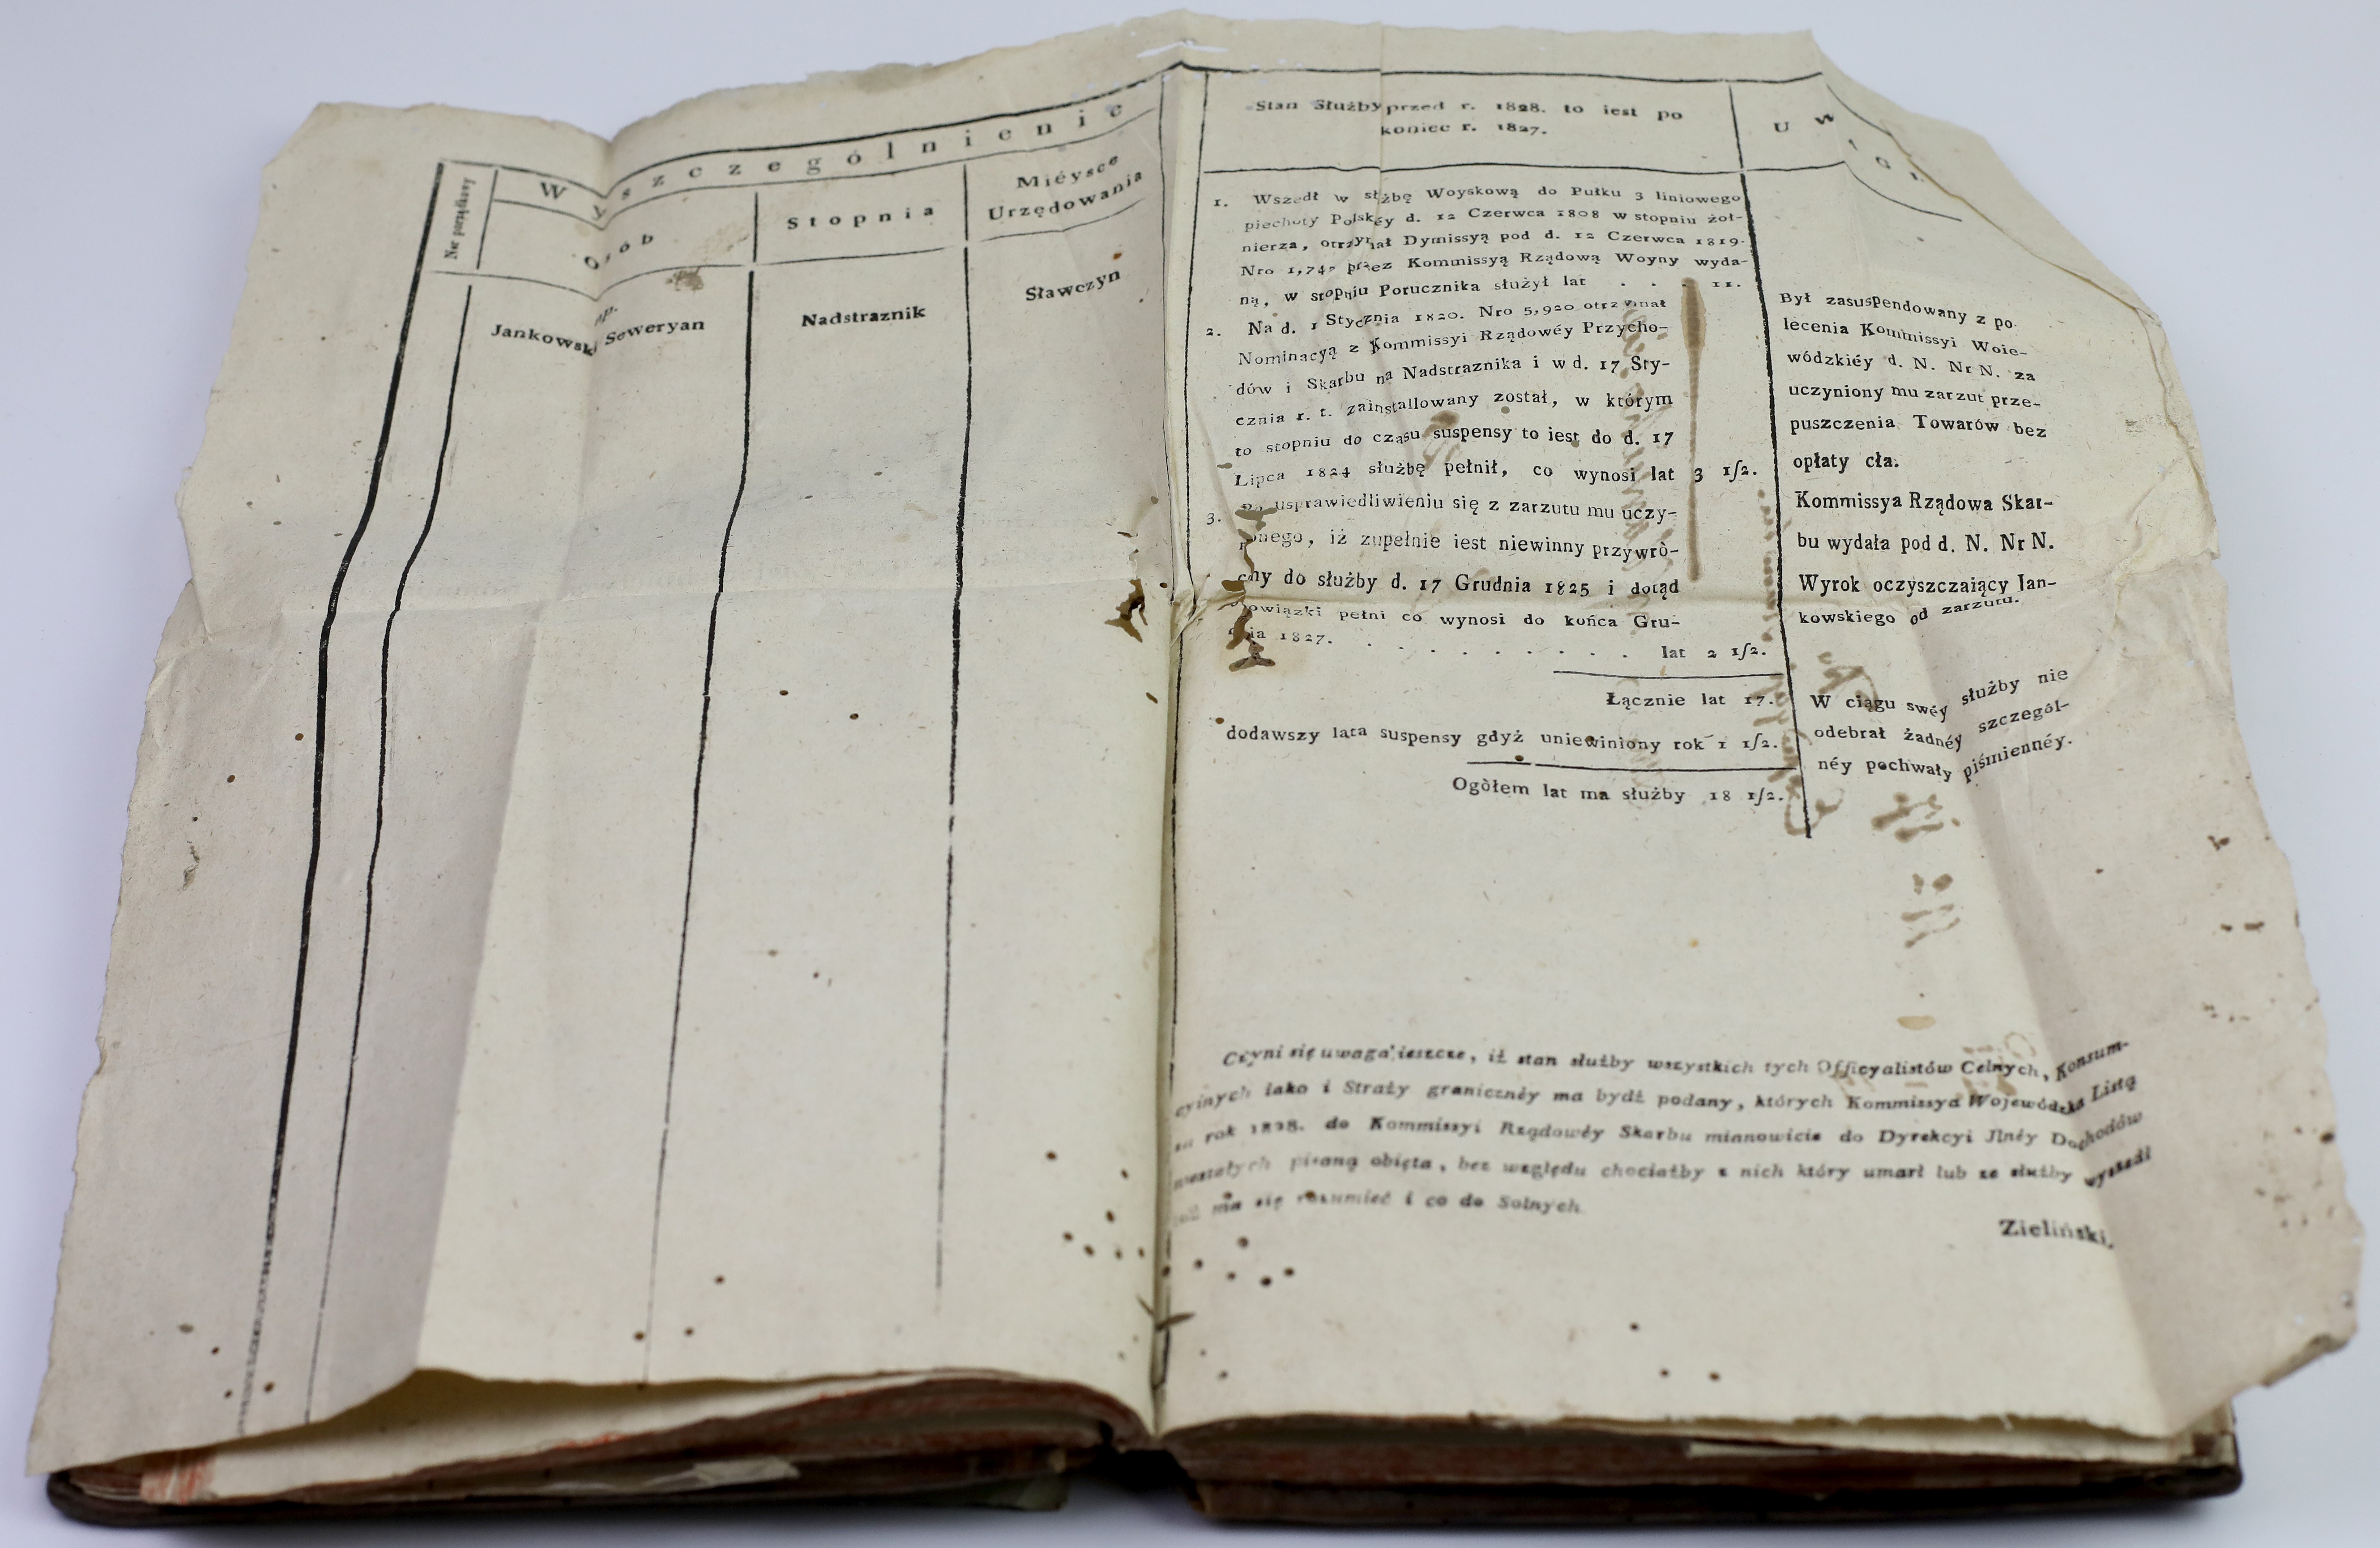 Wyszczególnienie
Nr porządkowy
Osób
Stopnia
Mieysce
Urzędowania
Jankowski Seweryan
Nadstraznik
Sławczyn
Stan Służby przed r. 1828. to iest po
koniec r. 1827.
Uwagi
1. Wszedł w słżbę Woyskową do Pułku 3 liniowego
piechoty Polskéy d. 12 Czerwca 1808 w stopniu żoł-
nierza, otrzymał Dymissyą pod d. 12 Czerwca 1819.
Nro 1,742 przez Kommissyą Rządową Woyny wyda-
ną, w stopniu Porucznika służył lat . . . 11.
2. Na d. 1 Stycznia 1820. Nro 5,920 otrzymał
Nominacyą z Kommissyi Rządowéy Przycho-
dów i Skarbu na Nadstraznika i w d. 17 Sty-
cznia r. t. zainstallowany został, w którym
to stopniu do czasu suspensy to iest do d. 17
Lipca 1824 służbę pełnił, co wynosi lat 3 1/2.
3. Po usprawiedliwieniu się z zarzutu mu uczy-
nionego, iż zupełnie iest niewinny przywrò-
cony do służby d. 17 Grudnia 1825 i dotąd
obowiązki pełni co wynosi do końca Gru-
dnia 1827. . . . . . . . . . . lat 2 1/2.
Łącznie lat 17.
dodawszy lata suspensy gdyż uniewiniony rok 1 1/2.
Ogòłem lat ma służby 18 1/2.
Był zasuspendowany z po
lecenia Kommissyi Woie-
wódzkiéy d. N. Nr N. za
uczyniony mu zarzut prze-
puszczenia Towarów bez
opłaty cła.
Kommissya Rządowa Skar-
bu wydała pod d. N. Nr N.
Wyrok oczyszczaiący Jan-
kowskiego od zarzutu.
W ciągu swéy służby nie
odebrał żadnéy szczegól-
néy pochwały piśmiennéy.
Czyni się uwaga ieszcze, iż stan służby wszystkich tych Officyalistów Celnych, Konsum-
cyinych iako i Straży granicznéy ma bydź podany, których Kommissya Wojewódzka Listą
za rok 1828. do Kommissyi Rządowéy Skarbu mianowicie do Dyrekcyi Jlnéy Dochodów
niestałych pisaną obięta, bez względu chociażby z nich który umarł lub ze służby wyszedł
ma się rozumieć i co do Solnych
Zieliński.